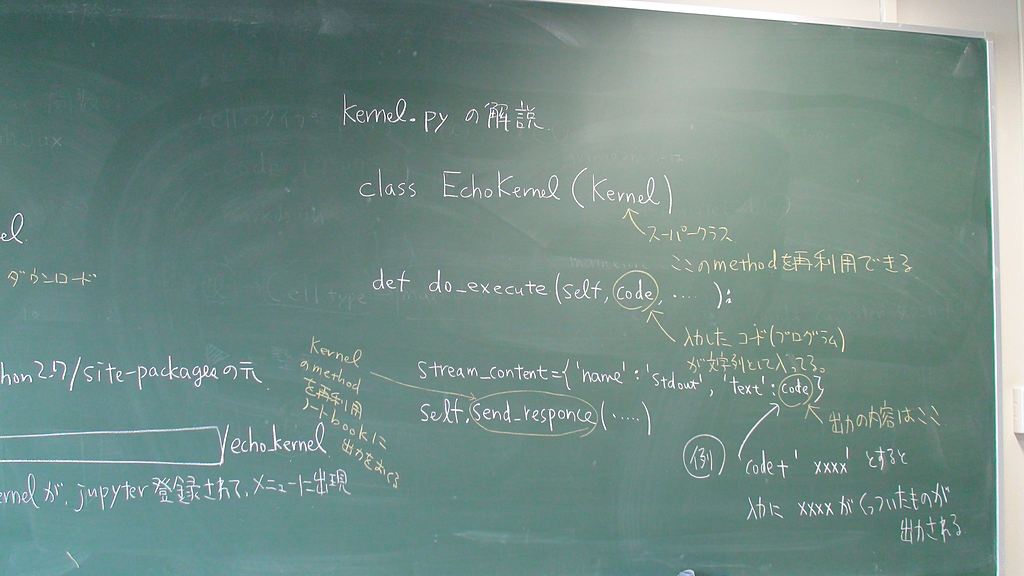 kernel.py の解説
class EchoKernel (Kernel)
スーパークラス
ここのmethodを再利用できる
def do_execute (self, code, ..... ):
入力した コード(プログラム)
が文字列として入ってる。
stream_content={'name':'stdout','text':code}
self.send_responce(.....)
Kernel
のmethod
を再利用
ノートbookに
出力の内容はここ
例
code+' xxxx' とすると
入力に xxxx がくっついたものが
出力される
el
ダウンロード
hon2.7/site-packagesの元
/echo_kernel
ernelが、jupyter登録されて、メニューに出現